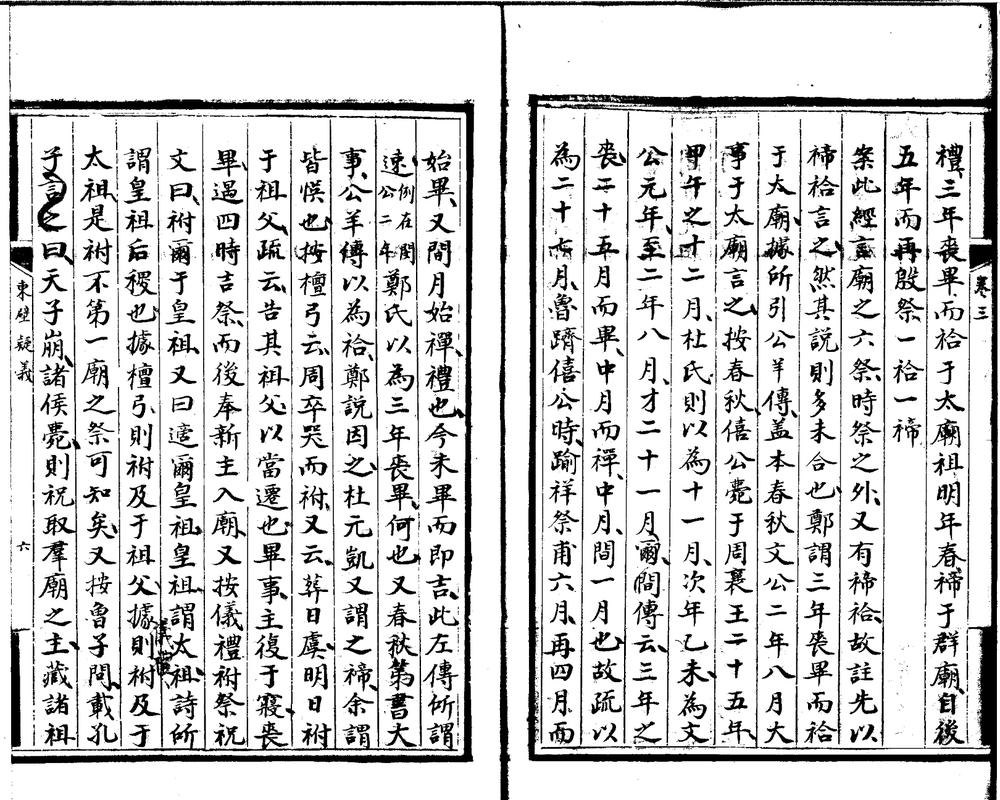 禮、三年喪畢、而祫于太廟祖、明年春、禘于群廟、自後
五年而再殷祭、一祫一禘、
案此經言廟之六祭、時祭之外、又有禘祫、故註先以
禘祫言之、然其說則多未合也、鄭謂三年喪畢而祫
于太廟、據所引公羊傳、盖本春秋文公二年八月大
事于太廟言之、按春秋、僖公薨于周襄王二十五年、
甲午之十二月、杜氏則以為十一月、次年乙未、為文
公元年、至二年八月、才二十一月爾、間傳云、三年之
喪二十五月而畢、中月而禫、中月、間一月也、故疏以
為二十七月、魯躋僖公時、踰祥祭甫六月、再四月、而
卷三
始畢、又間月始禫、禮也、今未畢而即吉、此左傳所謂
速、例在閔公二年鄭氏以為三年喪畢、何也、又春秋第書大
事、公羊傳以為祫、鄭說因之、杜元凱又謂之禘、余謂
皆悮也、按檀弓云、周卒哭而祔、又云、葬日虞、明日祔
于祖父、疏云、告其祖父、以當遷也、畢事、主復于寢、喪
畢、遇四時吉祭、而後奉新主入廟、又按儀禮祔祭祝
文曰、祔爾于皇祖、又曰、適爾皇祖、皇祖、謂太祖、詩所
謂皇祖后稷也、據檀弓、則祔及于祖父、據儀禮則祔及于
太祖、是祔不第一廟之祭可知矣、又按魯子問、載孔
子言之曰、天子崩、諸侯薨、則祝取羣廟之主、藏諸祖
東壁疑義
六